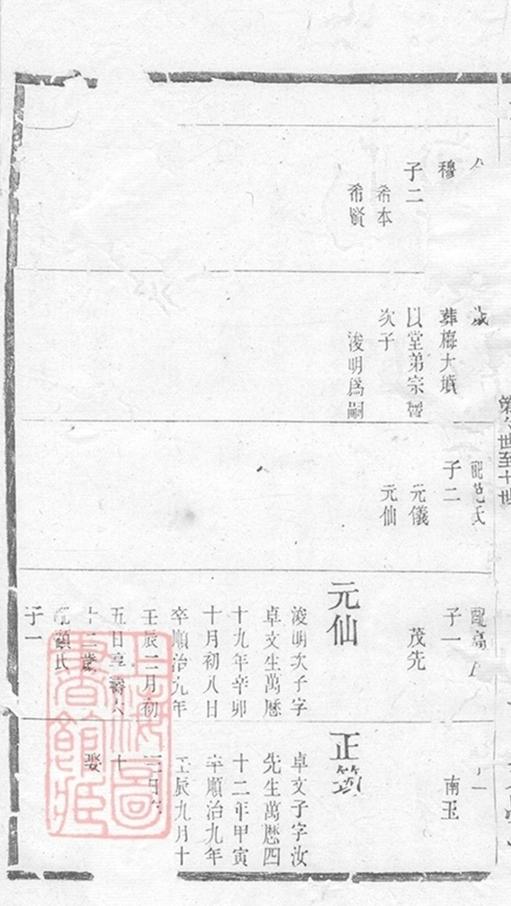 穆
子二
希本
希賢
歲
葬梅大墳
以堂弟宗
次子
浚明爲嗣
配范氏
子二
元儀
元仙
配高
子一
茂先
元仙
浚明次子字
卓文生萬曆
十九年辛卯
十月初八日
卒順治九年
壬辰二月初
五日享壽六
十二歲
配顧氏
子一
南玉
正
卓文子字汝
先生萬曆四
十二年甲寅
卒順治九年
壬辰九月十
三日年
十
娶
上海圖書館藏